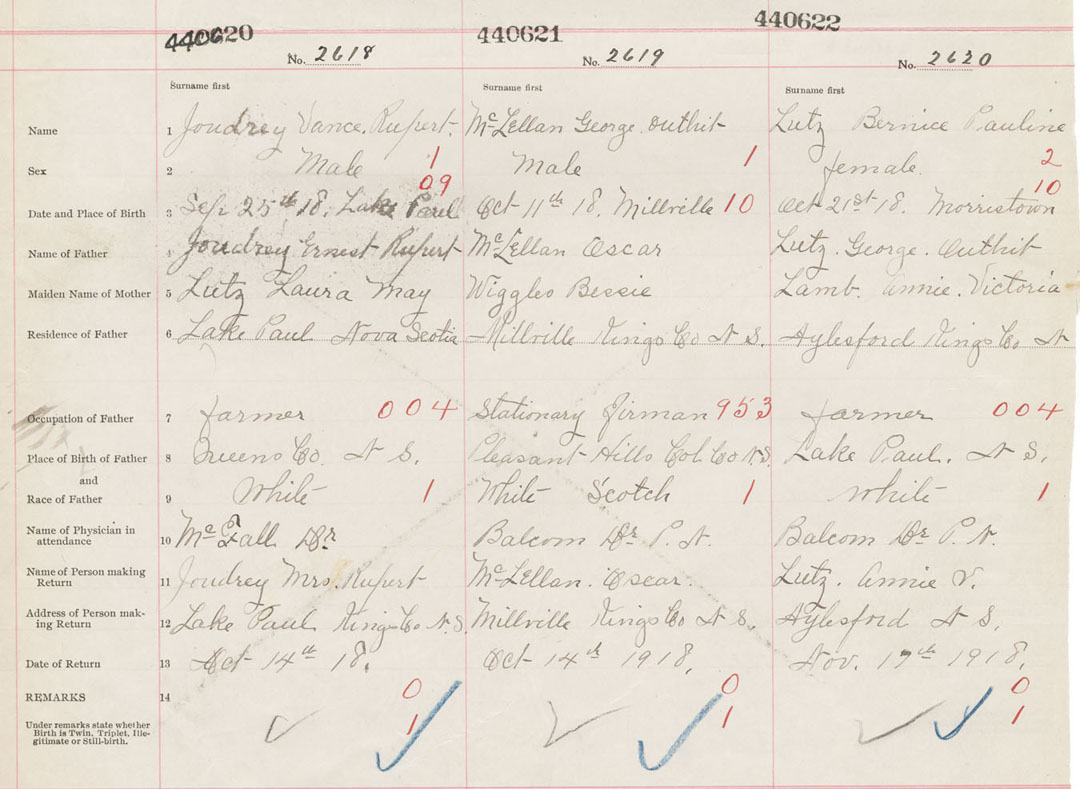 440620 440621 440622
No. 2618 No. 2619 No. 2620
Surname first Surname first Surname first
Name 1 Joudrey Vance. Rupert. McLellan George. Outhit Lutz Bernice Pauline
Sex 2 Male 1 Male 1 female. 2
09 10
Date and Place of Birth 3 Sep 25th 18. Lake Paul Oct 11th 18. Millville 10 Oct 21st 18. Morristown
Name of Father 4 Joudrey Ernest Rupert McLellan Oscar Lutz. George. Outhit
Maiden Name of Mother 5 Lutz Laura May Wiggles Bessie Lamb. Annie. Victoria
Residence of Father 6 Lake Paul Nova Scotia Millville Kings Co N S. Aylesford Kings Co N
Occupation of Father 7 farmer 004 Stationary firman 953 farmer 004
Place of Birth of Father 8 Queens Co. N S. Pleasant Hills Col. Co N.S. Lake Paul. N S.
and
Race of Father 9 White 1 White Scotch 1 White 1
Name of Physician in
attendance 10 Dr Balcom Dr P. N. Balcom Dr P. N.
Name of Person making
Return 11 Joudrey Mrs. Rupert McLellan. Oscar. Lutz. Annie V.
Address of Person mak-
ing Return 12 Lake Paul Kings Co N.S. Millville Kings Co N S. Aylesford N S.
Date of Return 13 Oct 14th 18. Oct 14th 1918. Nov. 17th 1918.
REMARKS 14 0 0 0
Under remarks state whether
Birth is Twin, Triplet, Ille-
gitimate or Still-birth. 1 1 1